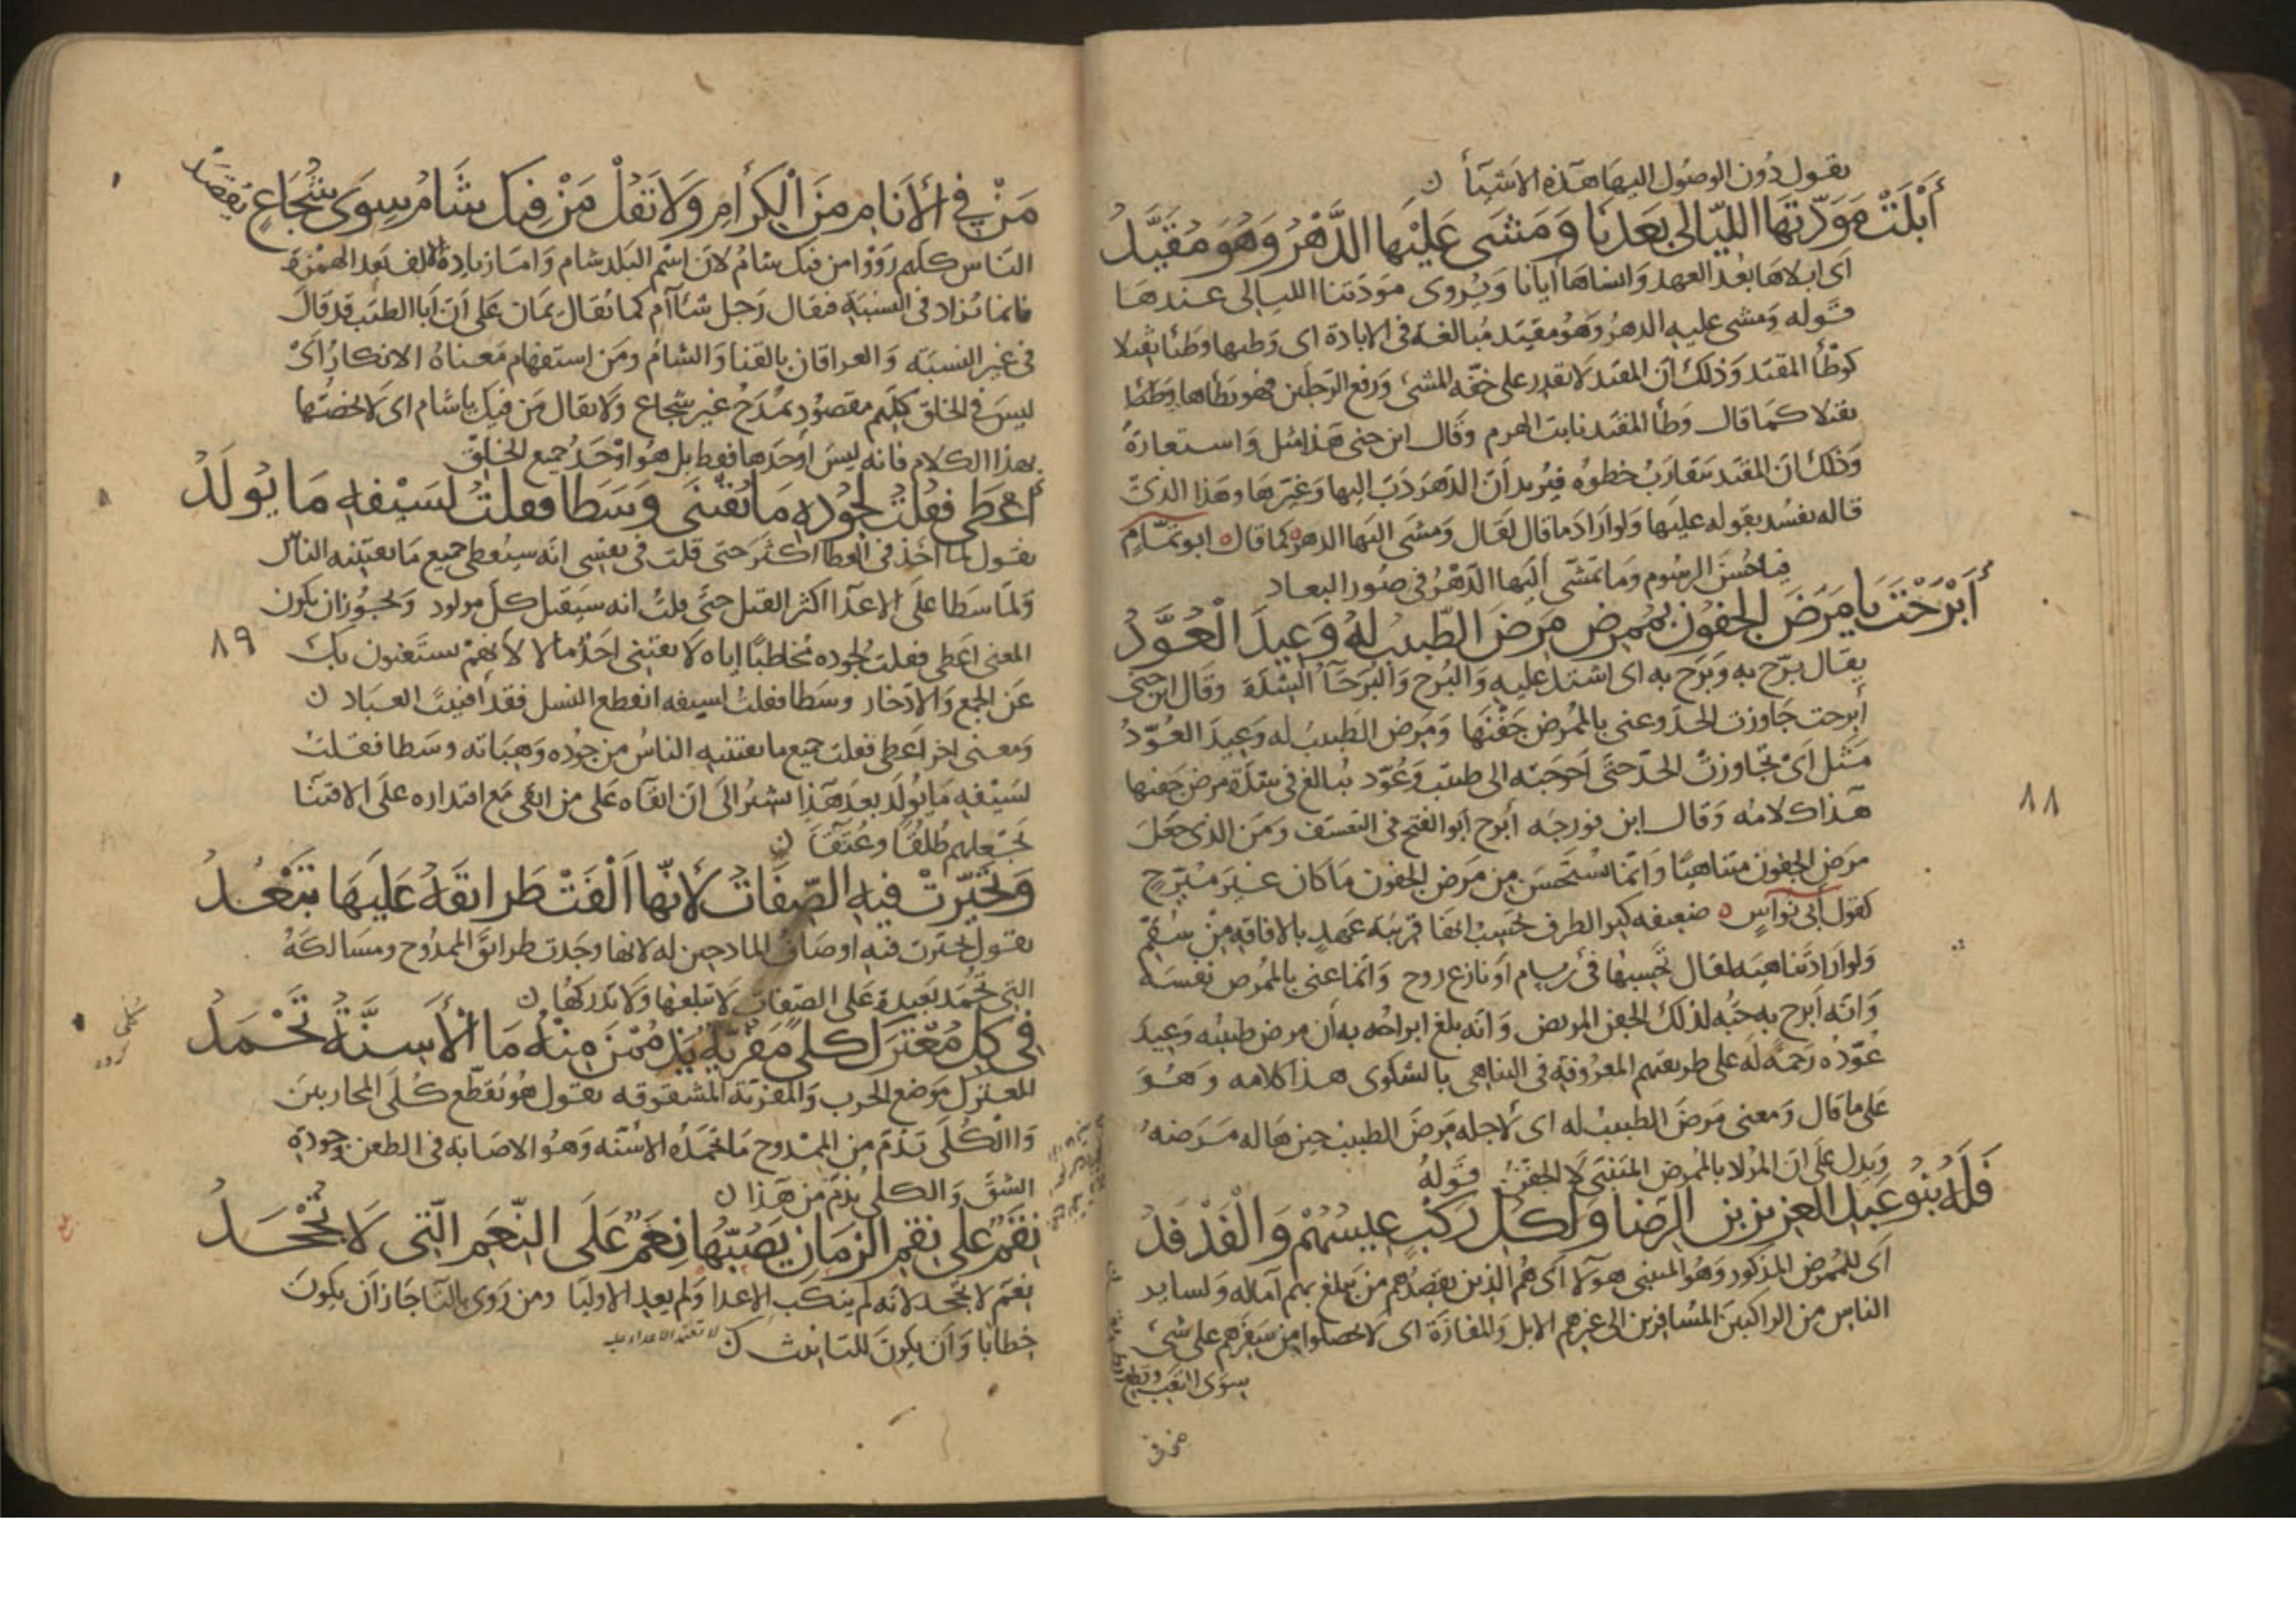 يقول دون الوصول اليها هذه الاشيأ ن
أَبْلَتْ مَوَدَّتَهَا الليّالى بَعَدنَا وَمَشَى عَلَيْها الدَّهْرُ وَهُوَ مُقَيَّدُ
اى ابلاها بعد العهد وانساها ايانا ويروى مودتنا الليالى عندها
قوله ومشى عليه الدهر وهو مقيد مبالغة فى الابادة اى وطيها وطئا ثقيلا
كوطأ المقيد وذلك ان المقيد لا يقدر على خفة المشى ورفع الرجلين فهو يطأها وطئا
ثقيلا كما قال وطأ المقيد نابت الهرم وقال ابن جنى هذا مثل واستعارة
وذلك ان المقيد يتقارب خطوه فيريد أن الدهر دب اليها وغيرها وهذا الذى
قاله يفسد بقوله عليها ولو اراد ما قال لقال ومشى اليها الدهر كما قال ابو تمّام
فيا حسن الرسوم وما تمشى اليها الدهر فى صور البعاد
أَبْرَحْتَ يَا مَرَضَ الجفون بمُمرض مَرِضَ الطّبيب لهُ وَعِيدَ الْعُوَّدُ
يقال برّح به وبرح به اى اشتد عليه والبرح والبرحآ الشدة وقال ابن جنى
أبرحت جاوزت الحد وعنى بالممرض جفنها ومرض الطبيب له وعيد العوّد
مثل اى تجاوزت الحد حتى احوجته الى طبيب وعوّد يبالغ فى شدة مرض جفنها
هذا كلامه وقال ابن فورجه أبرح أبو الفتح فى التعسف ومن الذى جعل
مرض الجفون متناهيا وانما يستحسن من مرض الجفون ما كان غير مبرّح
كقول أبى نواس ضعيفه كر الطرف تحسب انها قريبة عهد بالافاقة من سقم
ولو اراد تناهيه لقال تحسبها فى برسام او نازع روح وانما عنى بالممرض نفسه
وانه أبرح به حبه لذلك الجفن المريض وانه بلغ ابراحه به أن مرض طبيبه وعيد
عوّده رحمة له على طريقتهم المعروفة فى التناهى بالشكوى هذا كلامه وهو
على ما قال ومعنى مرض الطبيب له اى لاجله مرض الطبيب حين هاله مرضه
ويدل على ان المراد بالممرض المتنبى لا الجفن قوله
فَلَهُ بَنُو عَبدِ العزيز بن الرّضا وَلكلّ رَكْبٍ عِيسُهُمْ وَالْفَدْفَدُ
اى للممرض المذكور وهو المتنبى هولآ اى هم الذين يقصدهم من يبلغ بهم آماله ولساير
الناس من الراكبين المسافرين الى غيرهم الابل والمفازة اى لا يحصلوا من سفرهم على شئ
سوى التعب وقطع
٨٨
مَنْ فى الأنام مِنَ الْكِرَامِ وَلاَ تَقُلْ مَنْ فِيكَ شَامُ سِوَى شُجَاعٍ يُقصَدُ
الناس كلهم رووا من فيك شام لان اسم البلد شام واما زيادة الالف بعد الهمزة
فانما تزاد فى النسبة فيقال رجل شآم كما يقال يمان على أن أبا الطيب قد قال
فى غير النسبة والعراقان بالقنا والشام ومن استفهام معناه الانكار اى
ليس فى الخلق كلهم مقصود يمدح غير شجاع ولا يقال من فيك يا شام اى لا تخصها
بهذا الكلام فانه ليس أوحدها فقط بل هو اوحد جميع الخلق
أَعْطَى فَقلتُ لجُودِهِ مَا يُقْتنَى وَسَطا فقلتُ لسَيْفهِ مَا يُولَدُ
يقول لما اخذ فى العطا اكثر حتى قلت فى نفسى انه سيعطى جميع ما يقتنيه الناس
ولما سطا على الاعدآ اكثر القتل حتى قلت انه سيقتل كل مولود ويجوز ان يكون
المعنى اعطى فقلت لجوده مخاطبا اياه لا يقتنى احد مالا لانهم يستغنون بك
عن الجمع والادخار وسطا فقلت لسيفه انقطع النسل فقد افنيت العباد ن
ومعنى اخر اعطى فقلت جميع ما يقتنيه الناس من جوده وهباته وسطا فقلت
لسيفه ما يولد بعد هذا يشير الى ان ابقآه على من ابقى مع اقتداره على الافنا
بجعلهم طلقا وعتقآ ن
وَتَحَيّرَتْ فيهِ الصّفَاتُ لأنّها أَلْفَتْ طَرائقَهُ عَلَيهَا تَبْعُدُ
يقول تحيرت فيه اوصاف المادحين له لانها وجدت طرائق الممدوح ومسالكه
التى تحمد بعيدة على الصفات لا تبلغها ولا تدركها ن
فى كلّ مُعْتَرَكٍ كلًى مَفْرِيّةٌ يَذْمُمْنَ مِنْهُ مَا الأَسِنَّةُ تَحْمَدُ
المعترك موضع الحرب والمفرية المشقوقه يقول هو يقطّع كلى المحاربين
والكلى تذم من الممدوح ما تحمده الاسنه وهو الاصابه فى الطعن وجودة
الشق والكلى يذم من هذا ن
نِقَمٌ على نِقَمِ الزمَان يَصُبّهَا نِعَمٌ عَلَى النّعَمِ الّتى لاَ تُجْحَدُ
نعم لا تجحد لانه لم ينكب الاعدا ولم يعد الاوليا ومن روى بالتا جاز أن يكون
خطابا وأن يكون للتانيث ن
٨٩